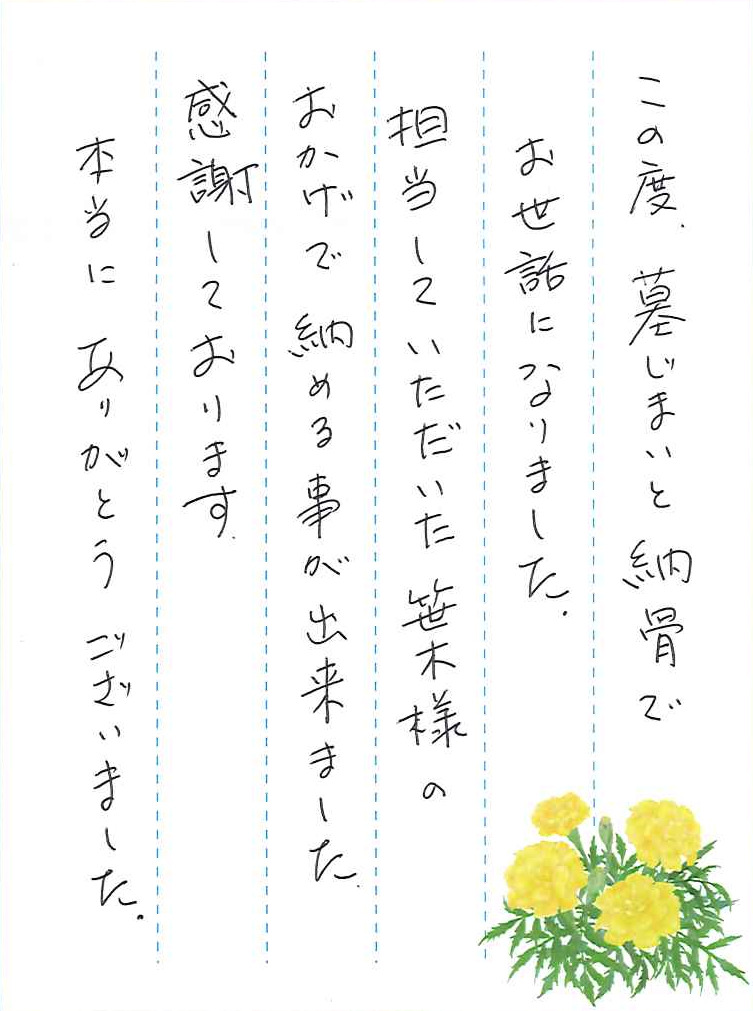 この度、墓じまいと納骨で
お世話になりました。
担当していただいた笹木様の
おかげで納める事が出来ました。
感謝しております。
本当にありがとうございました。